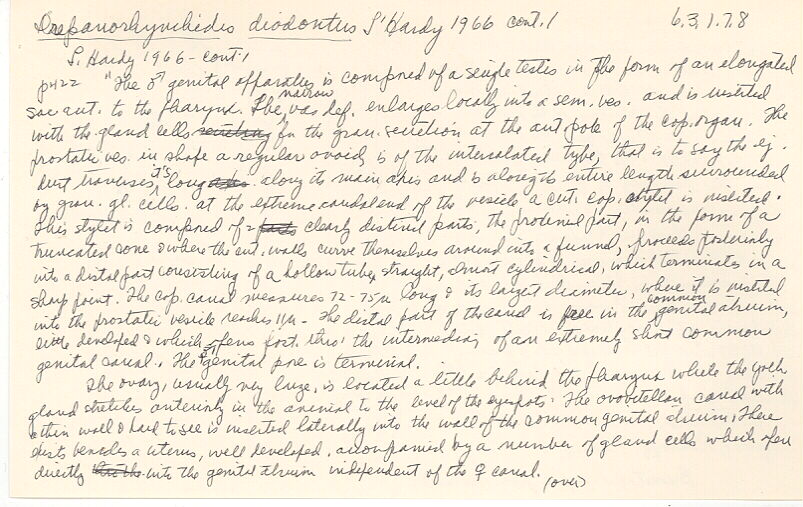 Drepanorhynchides diodontus S'Hardy 1966 cont./ 6.3.1.7.8
S. Hardy 1966 - cont'/
p422 "The ♂ genital apparatus is composed of a single testes in the form of an elongated
sac ant. to the pharynx. The narrow vas def. enlarges locally into a sem. ves. and is inserted
with the gland cells for the gran. secretion at the ant pole of the cop. organ. The
prostatic ves. in shape a regular ovoid, is of the intercalated type, that is to say the ej.
duct traverses its long along its main axis and is along its entire length surrounded
by gran. gl. cells. at the extreme caudal end of the vesicle a cut. cop. stylet is inserted.
This stylet is composed of 2 clearly distinct parts, the proximal part, in the form of a
truncated cone & where the cut. walls curve themselves around into a funnel, proceeds posteriorly
into a distal part consisting of a hollow tube, straight, almost cylindrical, which terminates in a
sharp point. The cop. canal measures 72-75µ long & its largest diameter, where it is inserted
into the prostatic vesicle reaches 11µ. The distal part of the canal is free in the common genital atrium,
little developed & which opens post. thro' the intermediary of an extremely short common
genital canal. The genital pore is terminal.
The ovary, usually very large, is located a little behind the pharynx while the yolk
gland stretches anteriorly in the animal to the level of the eyespots. The ovovitellan canal with
a thin wall & hard to see is inserted laterally into the wall of the common genital atrium. There
exists besides a uterus, well developed, accompanied by a number of gland cells which open
directly into the genital atrium independent of the ♀ canal.
(over)